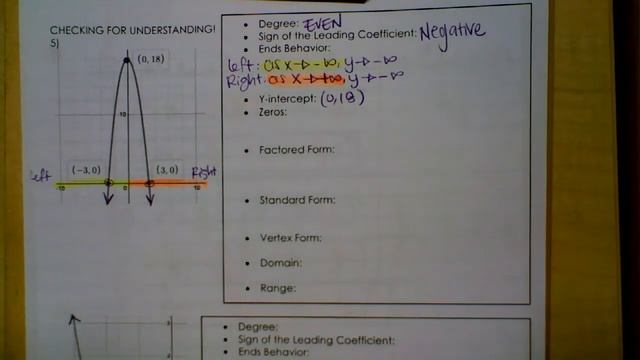 CHECKING FOR UNDERSTANDING!
5)
(0, 18)
10
(-3, 0)
(3, 0)
left
Right
-10
0
10
• Degree: EVEN
• Sign of the Leading Coefficient: Negative
• Ends Behavior:
left: as x→-∞, y→-∞
Right: as x→+∞, y→-∞
• Y-intercept: (0, 18)
• Zeros:
• Factored Form:
• Standard Form:
• Vertex Form:
• Domain:
• Range:
• Degree:
• Sign of the Leading Coefficient:
• Ends Behavior: